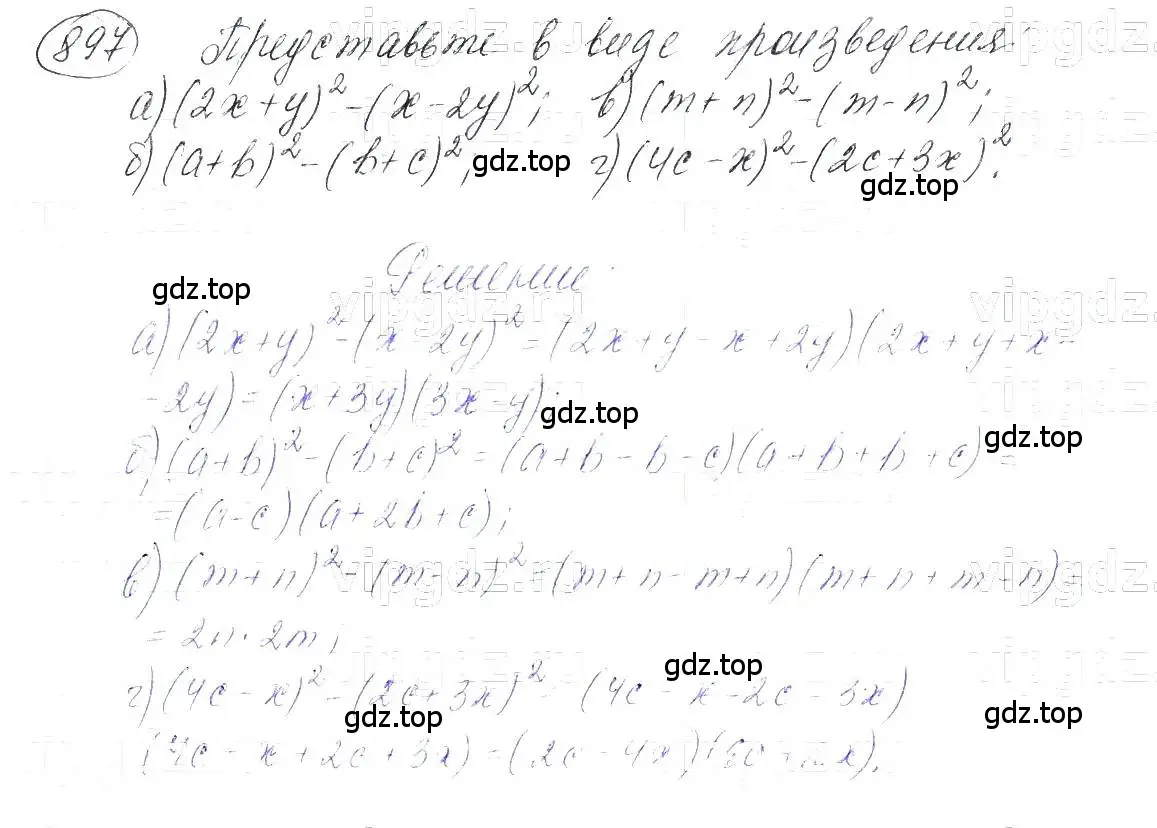 897 Представьте в виде произведения:
а) (2x+y)²-(x-2y)²; в) (m+n)²-(m-n)²;
б) (a+b)²-(b+c)²; г) (4c-x)²-(2c+3x)².
Решение:
а) (2x+y)²-(x-2y)²=(2x+y-x+2y)(2x+y+x-
-2y)=(x+3y)(3x-y);
б) (a+b)²-(b+c)²=(a+b-b-c)(a+b+b+c)=
=(a-c)(a+2b+c);
в) (m+n)²-(m-n)²=(m+n-m+n)(m+n+m-n)=
=2n·2m;
г) (4c-x)²-(2c+3x)² (4c-x-2c-3x)
(4c-x+2c+3x)=(2c-4x)
gdz.top
gdz.top
gdz.top
gdz.top
gdz.top
gdz.top
gdz.top
gdz.top
vipgdz.ru
vipgdz.
vipgdz.ru
vipgdz.
vipgdz.ru
vipgdz.